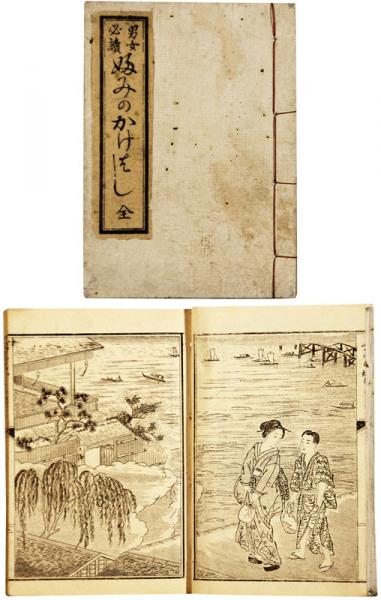 男女
必讀
ふみのかけはし
全